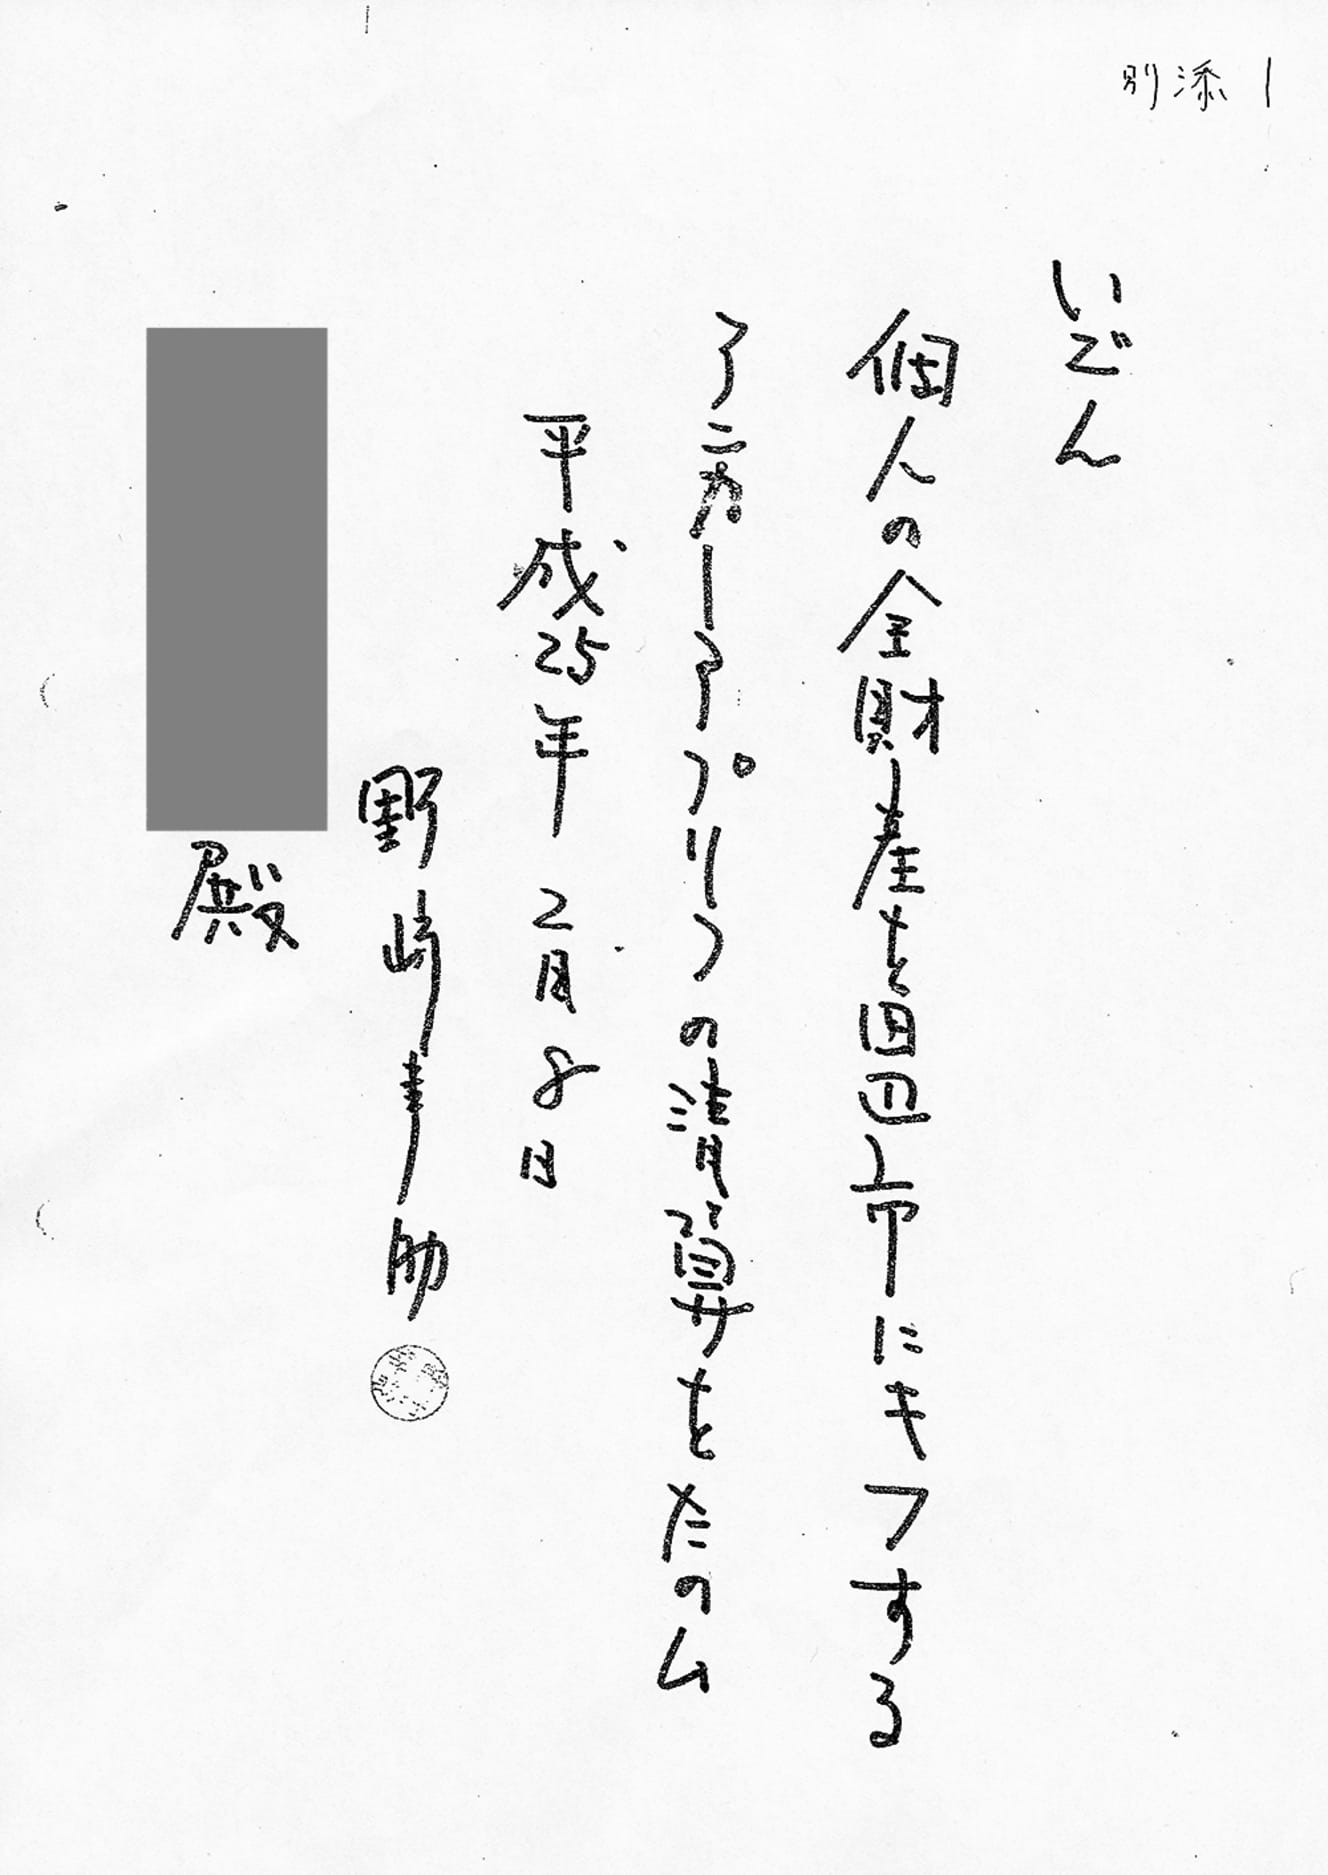 別添1
いごん
個人の全財産を田辺市にキフする
アンカーアプリコの清算をたのム
平成25年2月8日
野崎幸助
殿